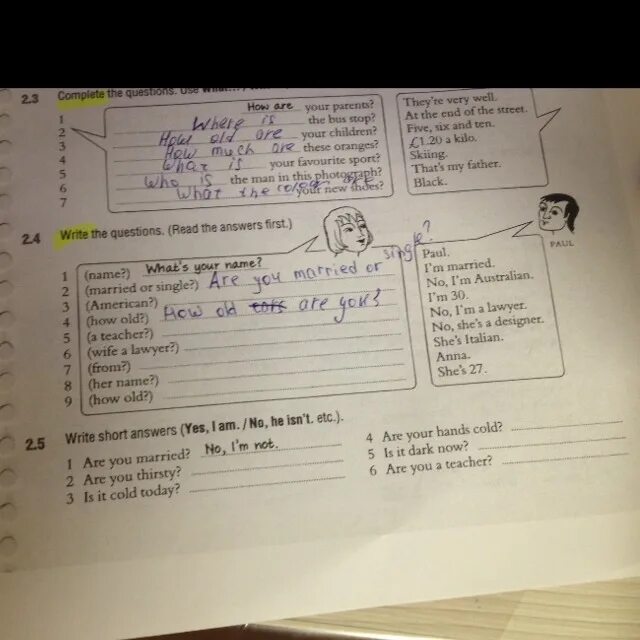 2.3 Complete the questions. Use
1 How are your parents?
2 Where is the bus stop?
3 How old are your children?
4 How much are these oranges?
5 What is your favourite sport?
6 Who is the man in this photograph?
7 What the color are your new shoes?
They're very well.
At the end of the street.
Five, six and ten.
£1.20 a kilo.
Skiing.
That's my father.
Black.
2.4 Write the questions. (Read the answers first.)
1 (name?) What's your name?
2 (married or single?) Are you married or single?
3 (American?)
4 (how old?) How old are you?
5 (a teacher?)
6 (wife a lawyer?)
7 (from?)
8 (her name?)
9 (how old?)
PAUL
Paul.
I'm married.
No, I'm Australian.
I'm 30.
No, I'm a lawyer.
No, she's a designer.
She's Italian.
Anna.
She's 27.
2.5 Write short answers (Yes, I am. / No, he isn't. etc.).
1 Are you married? No, I'm not.
2 Are you thirsty?
3 Is it cold today?
4 Are your hands cold?
5 Is it dark now?
6 Are you a teacher?